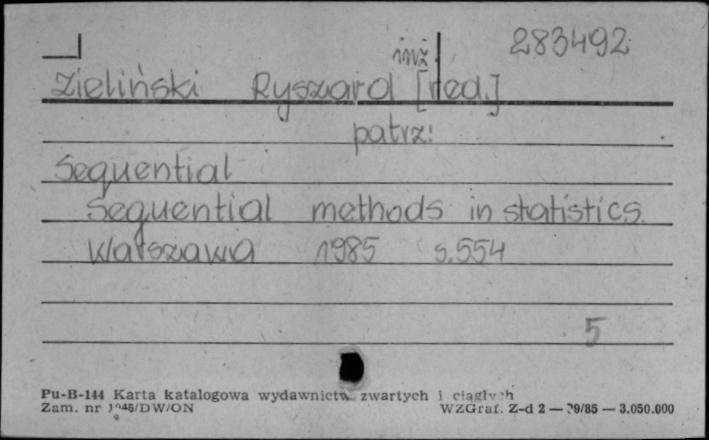 283492
inż.
Zieliński Ryszard [red.]
patrz:
Sequential
Sequential methods in statistics.
Warszawa 1985 s.554
5
Pu-B-144 Karta katalogowa wydawnictw zwartych i ciągłych
Zam. nr /DW/ON WZGraf. Z-d 2 — 9/85 — 3.050.000